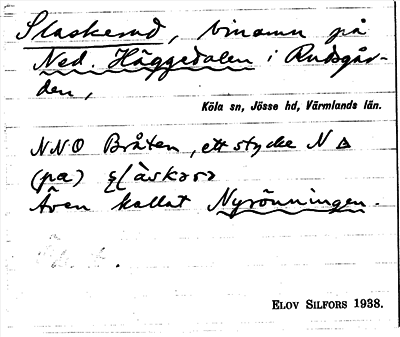 Slaskerud, binamn på
Ned. Häggedalen i Rudsgår-
den,
Köla sn, Jösse hd, Värmlands län.
NNO Bråten, ett stycke N △
(pa)
Även kallat Nyrönningen.
ELOV SILFORS 1938.